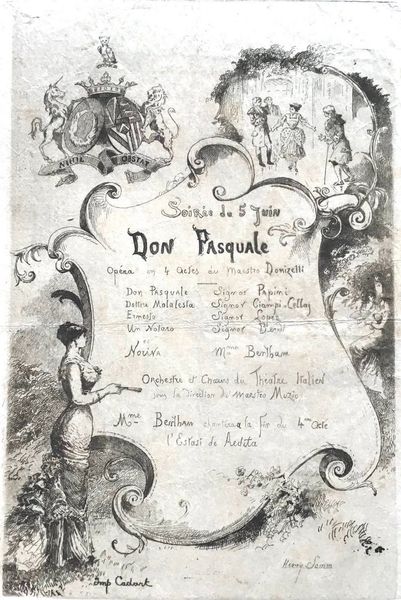 NIHIL OBSTAT
Soirée du 5 Juin
Don Pasquale
Opéra en 4 Actes du Maestro Donizetti
Don Pasquale Signor Papini
Dottore Malatesta Signor Ciampi-Cellaj
Ernesto Signor Lopez
Un Notaro Signor
et
Norina Mme Bertham
Orchestre et Chœurs du Théatre Italien
sous la direction du Maestro Muzio
Mme Bertham chantera à la fin du 4me Acte
l'Estasi de Arditа
Imp Cadart
Henry Somm